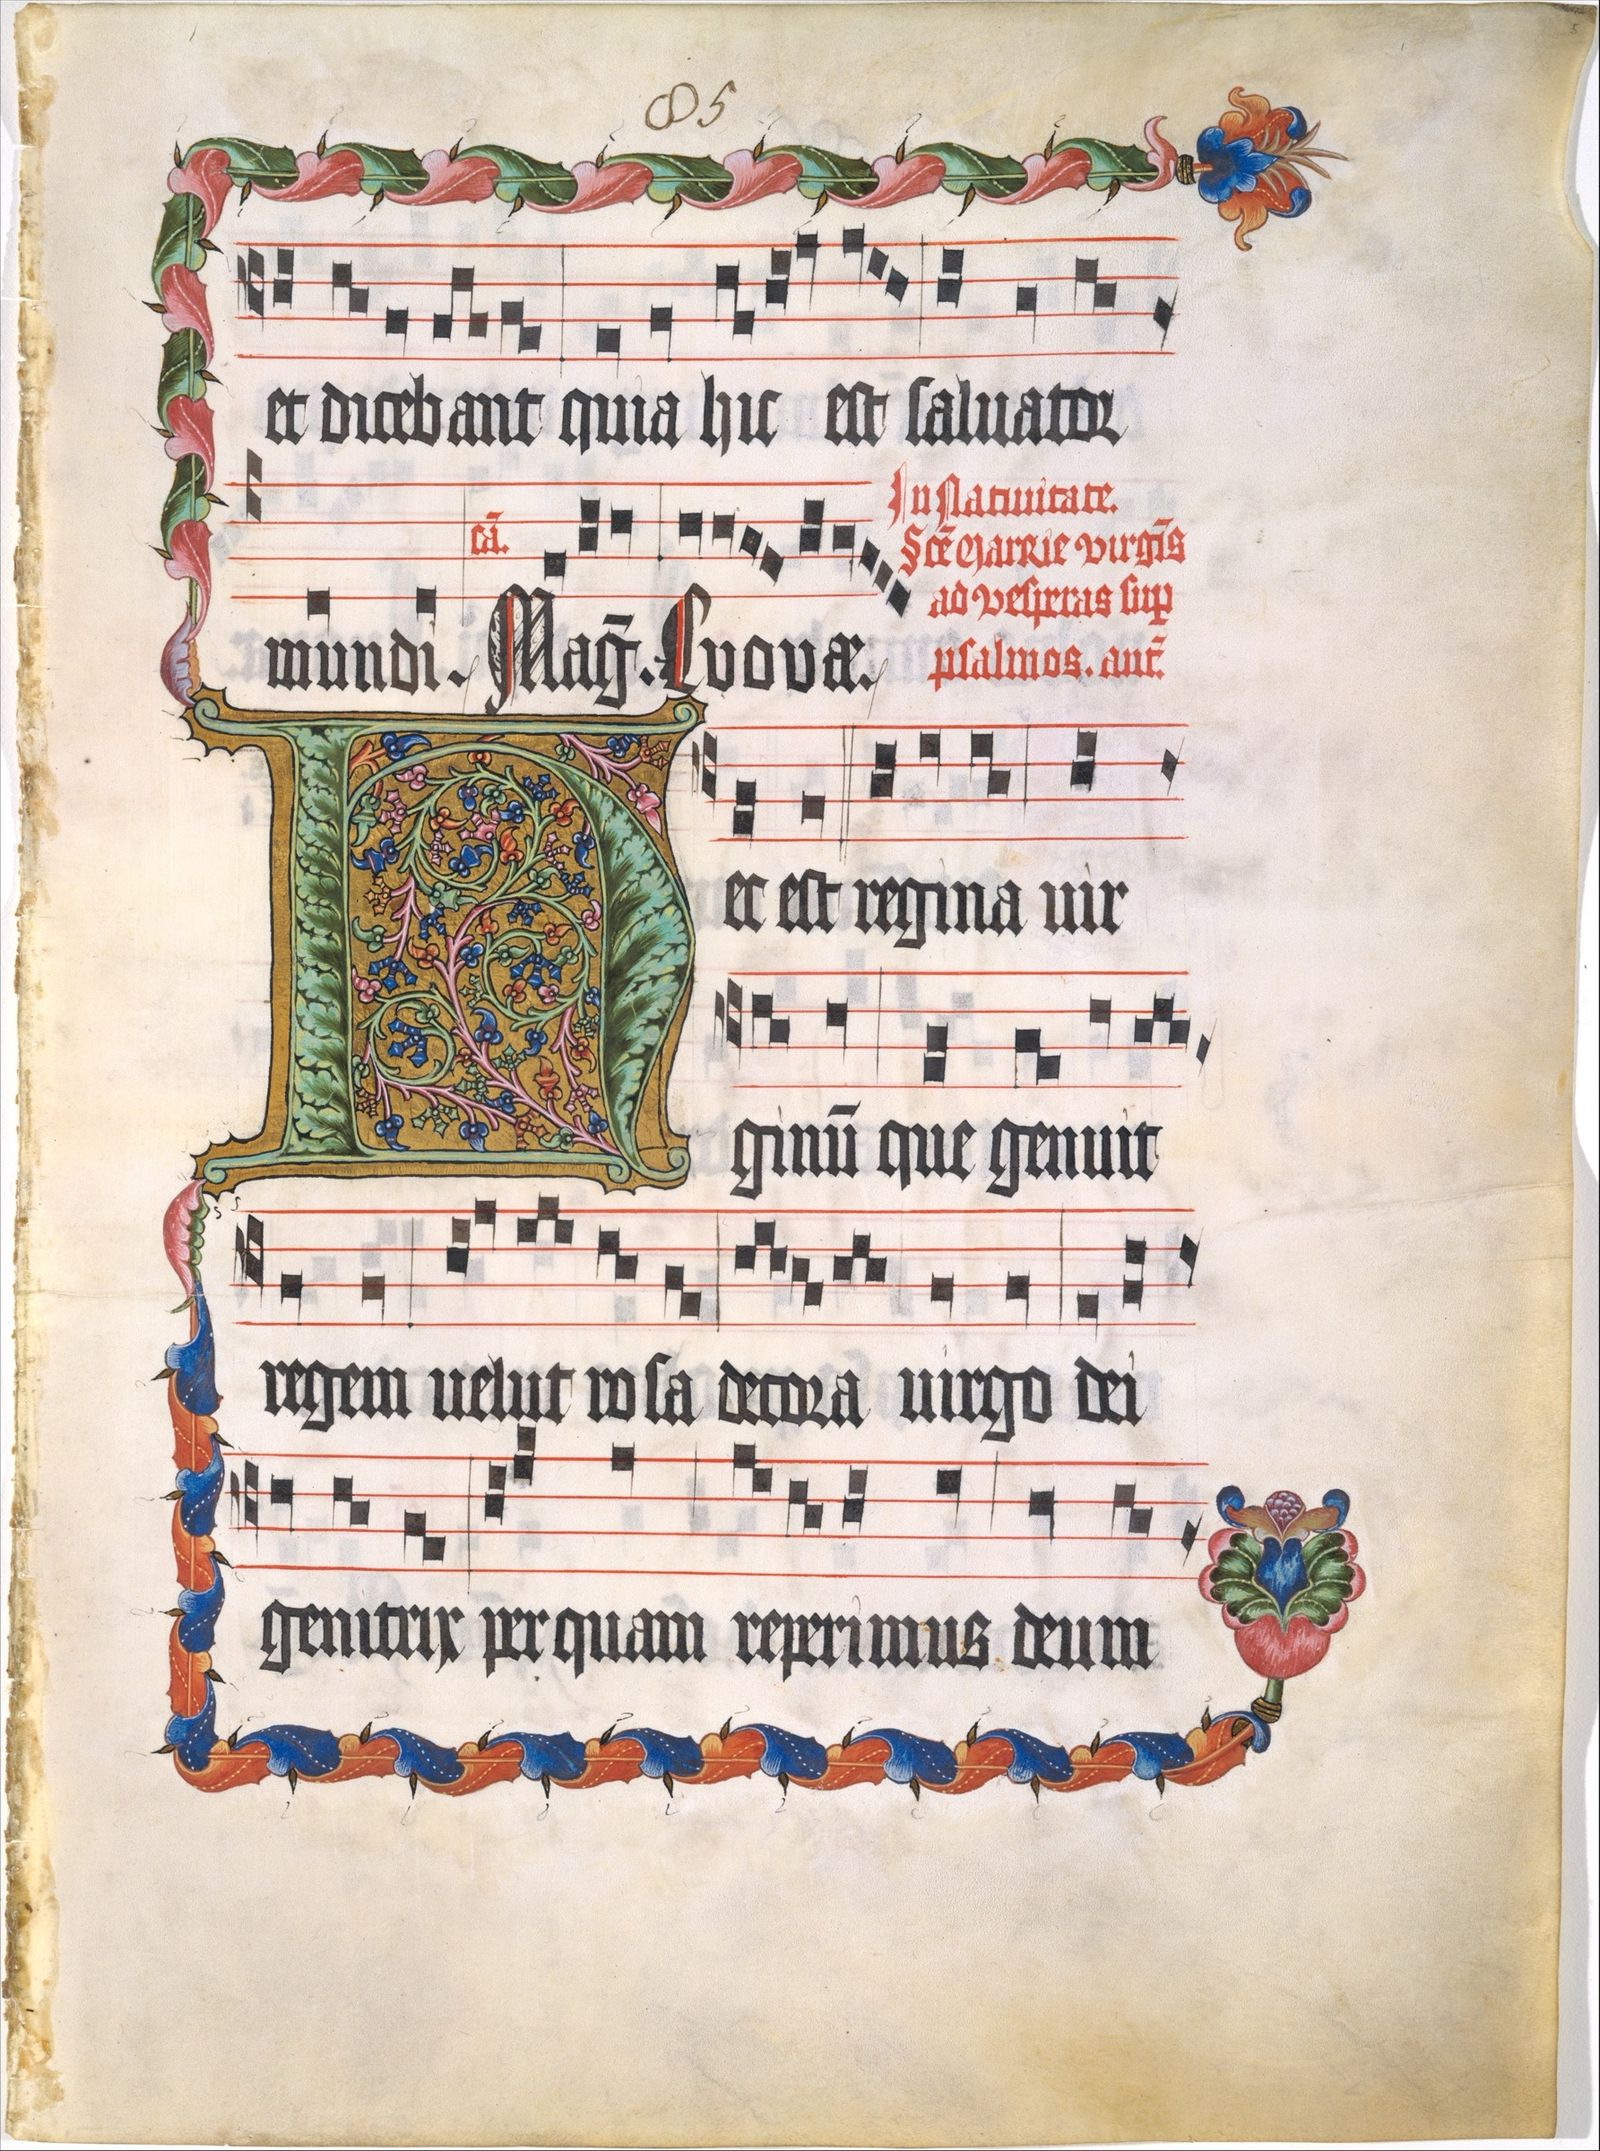 85
et dicebant quia hic est saluator
cā.
mundi. Mag̃. Euouae.
In Natiuitate.
Scē Marie virgīs
ad vesperas sup
psalmos. ant̄.
Hec est regina uir
ginū que genuit
regem uelut rosa decora uirgo dei
genitrix per quam reperimus deum